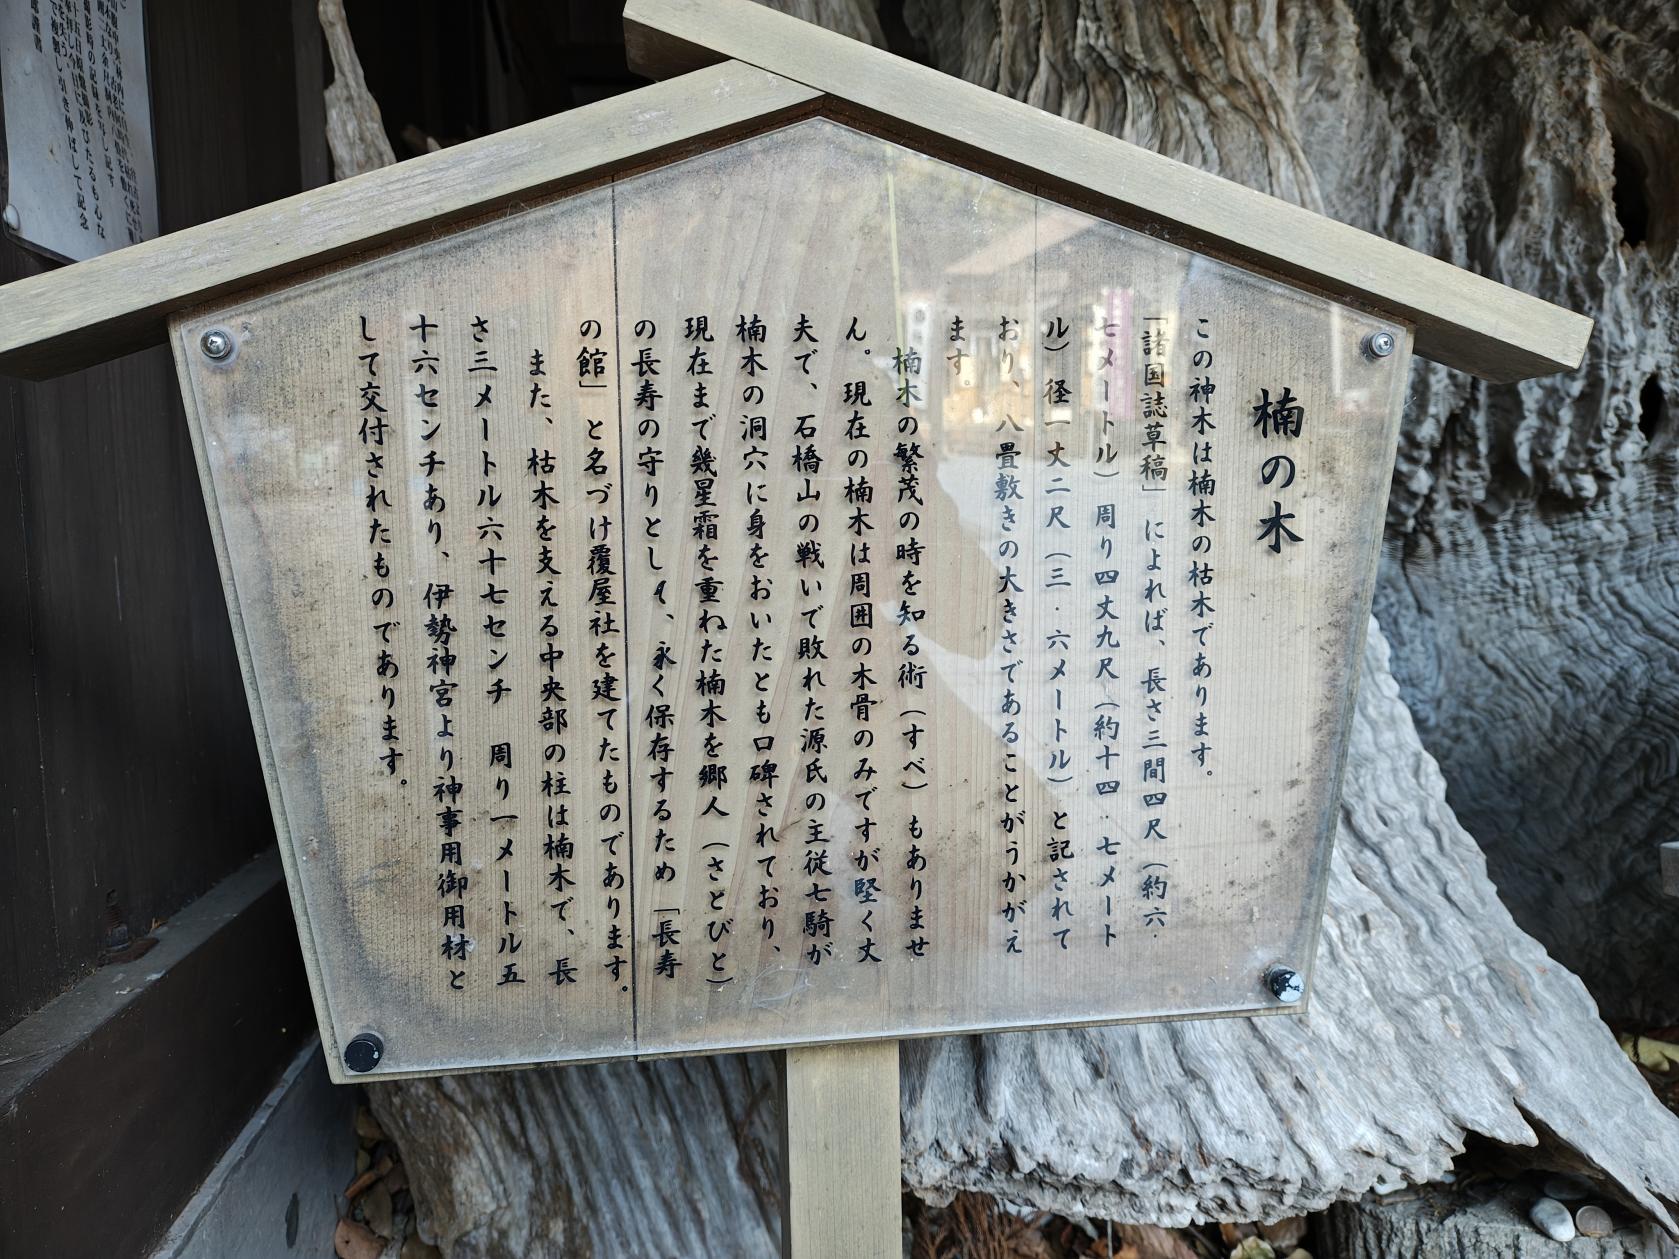 楠の木
この神木は楠木の枯木であります。
「諸国誌草稿」によれば、長さ三間四尺（約六．
七メートル）周り四丈九尺（約十四．七メート
ル）径一丈二尺（三．六メートル）と記されて
おり、八畳敷きの大きさであることがうかがえ
ます。
楠木の繁茂の時を知る術（すべ）もありませ
ん。現在の楠木は周囲の木骨のみですが堅く丈
夫で、石橋山の戦いで敗れた源氏の主従七騎が
楠木の洞穴に身をおいたとも口碑されており、
現在まで幾星霜を重ねた楠木を郷人（さとびと）
の長寿の守りとして、永く保存するため「長寿
の館」と名づけ覆屋社を建てたものであります。
また、枯木を支える中央部の柱は楠木で、長
さ三メートル六十七センチ　周り一メートル五
十六センチあり、伊勢神宮より神事用御用材と
して交付されたものであります。